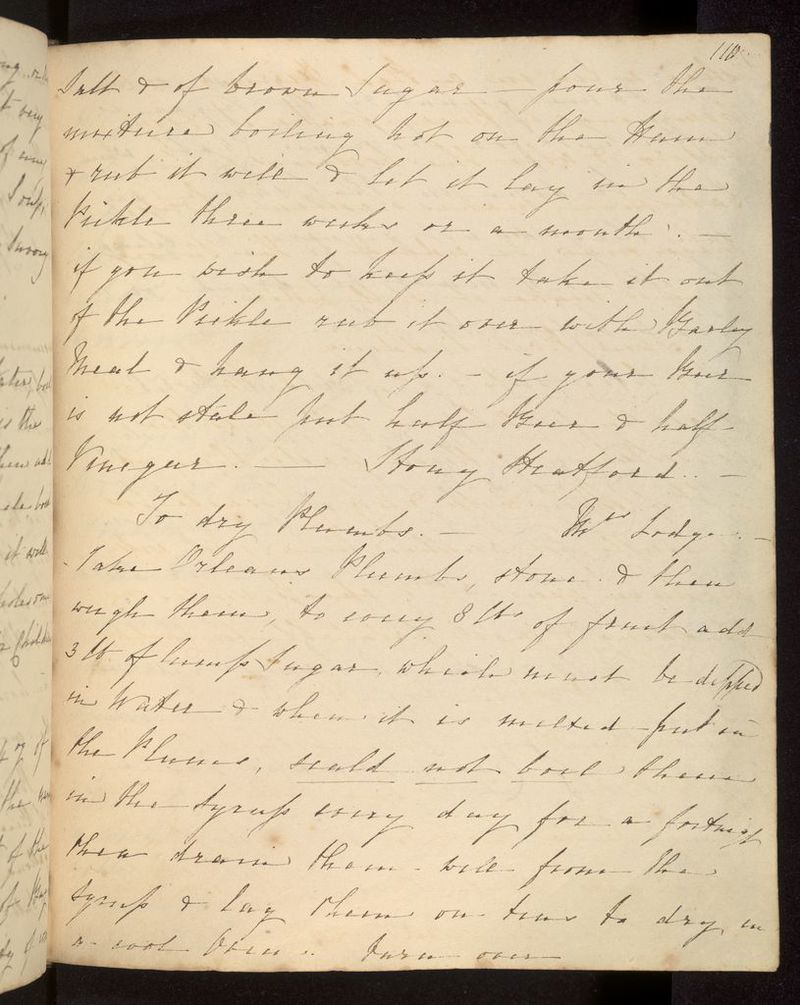 110
Salt & of brown Sugar – pour the
mixture boiling hot on the Ham
& rub it well & let it lay in the
Pickle three weeks or a month. –
if you wish to keep it take it out
of the Pickle rub it over with Barley
Meal & hang it up. – if your Beer
is not stale put half Beer & half
Vinegar. – Stony Stratford. –
To dry Plumbs. – Mrs Lodge. –
Take Orleans Plumbs, stone & then
weigh them, to every 8 lbs of fruit add
3 lb of lump Sugar, which must be dipped
in Water & when it is melted put in
the Plums, scald not boil them
in the Syrup every day for a fortnight
then drain them well from the
Syrup & lay them on tins to dry in
a cool Oven. Turn over